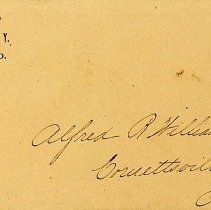 Y.
o.
Alfred R. Willia
Cornettsvil